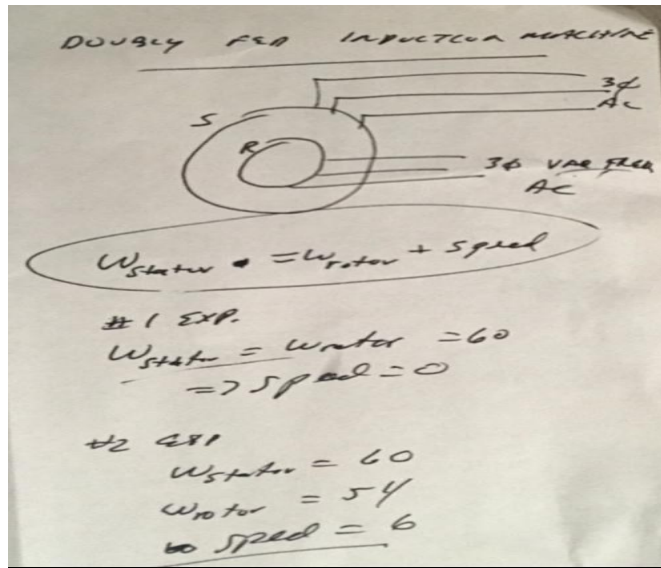 DOUBLY FED INDUCTION MACHINE
3ϕ
AC
S
R
3ϕ VAR FREQ
AC
Wstator = Wrotor + speed
# 1 EXP.
Wstator = Wrotor = 60
=> speed = 0
#2 EXP
Wstator = 60
Wrotor = 54
speed = 6